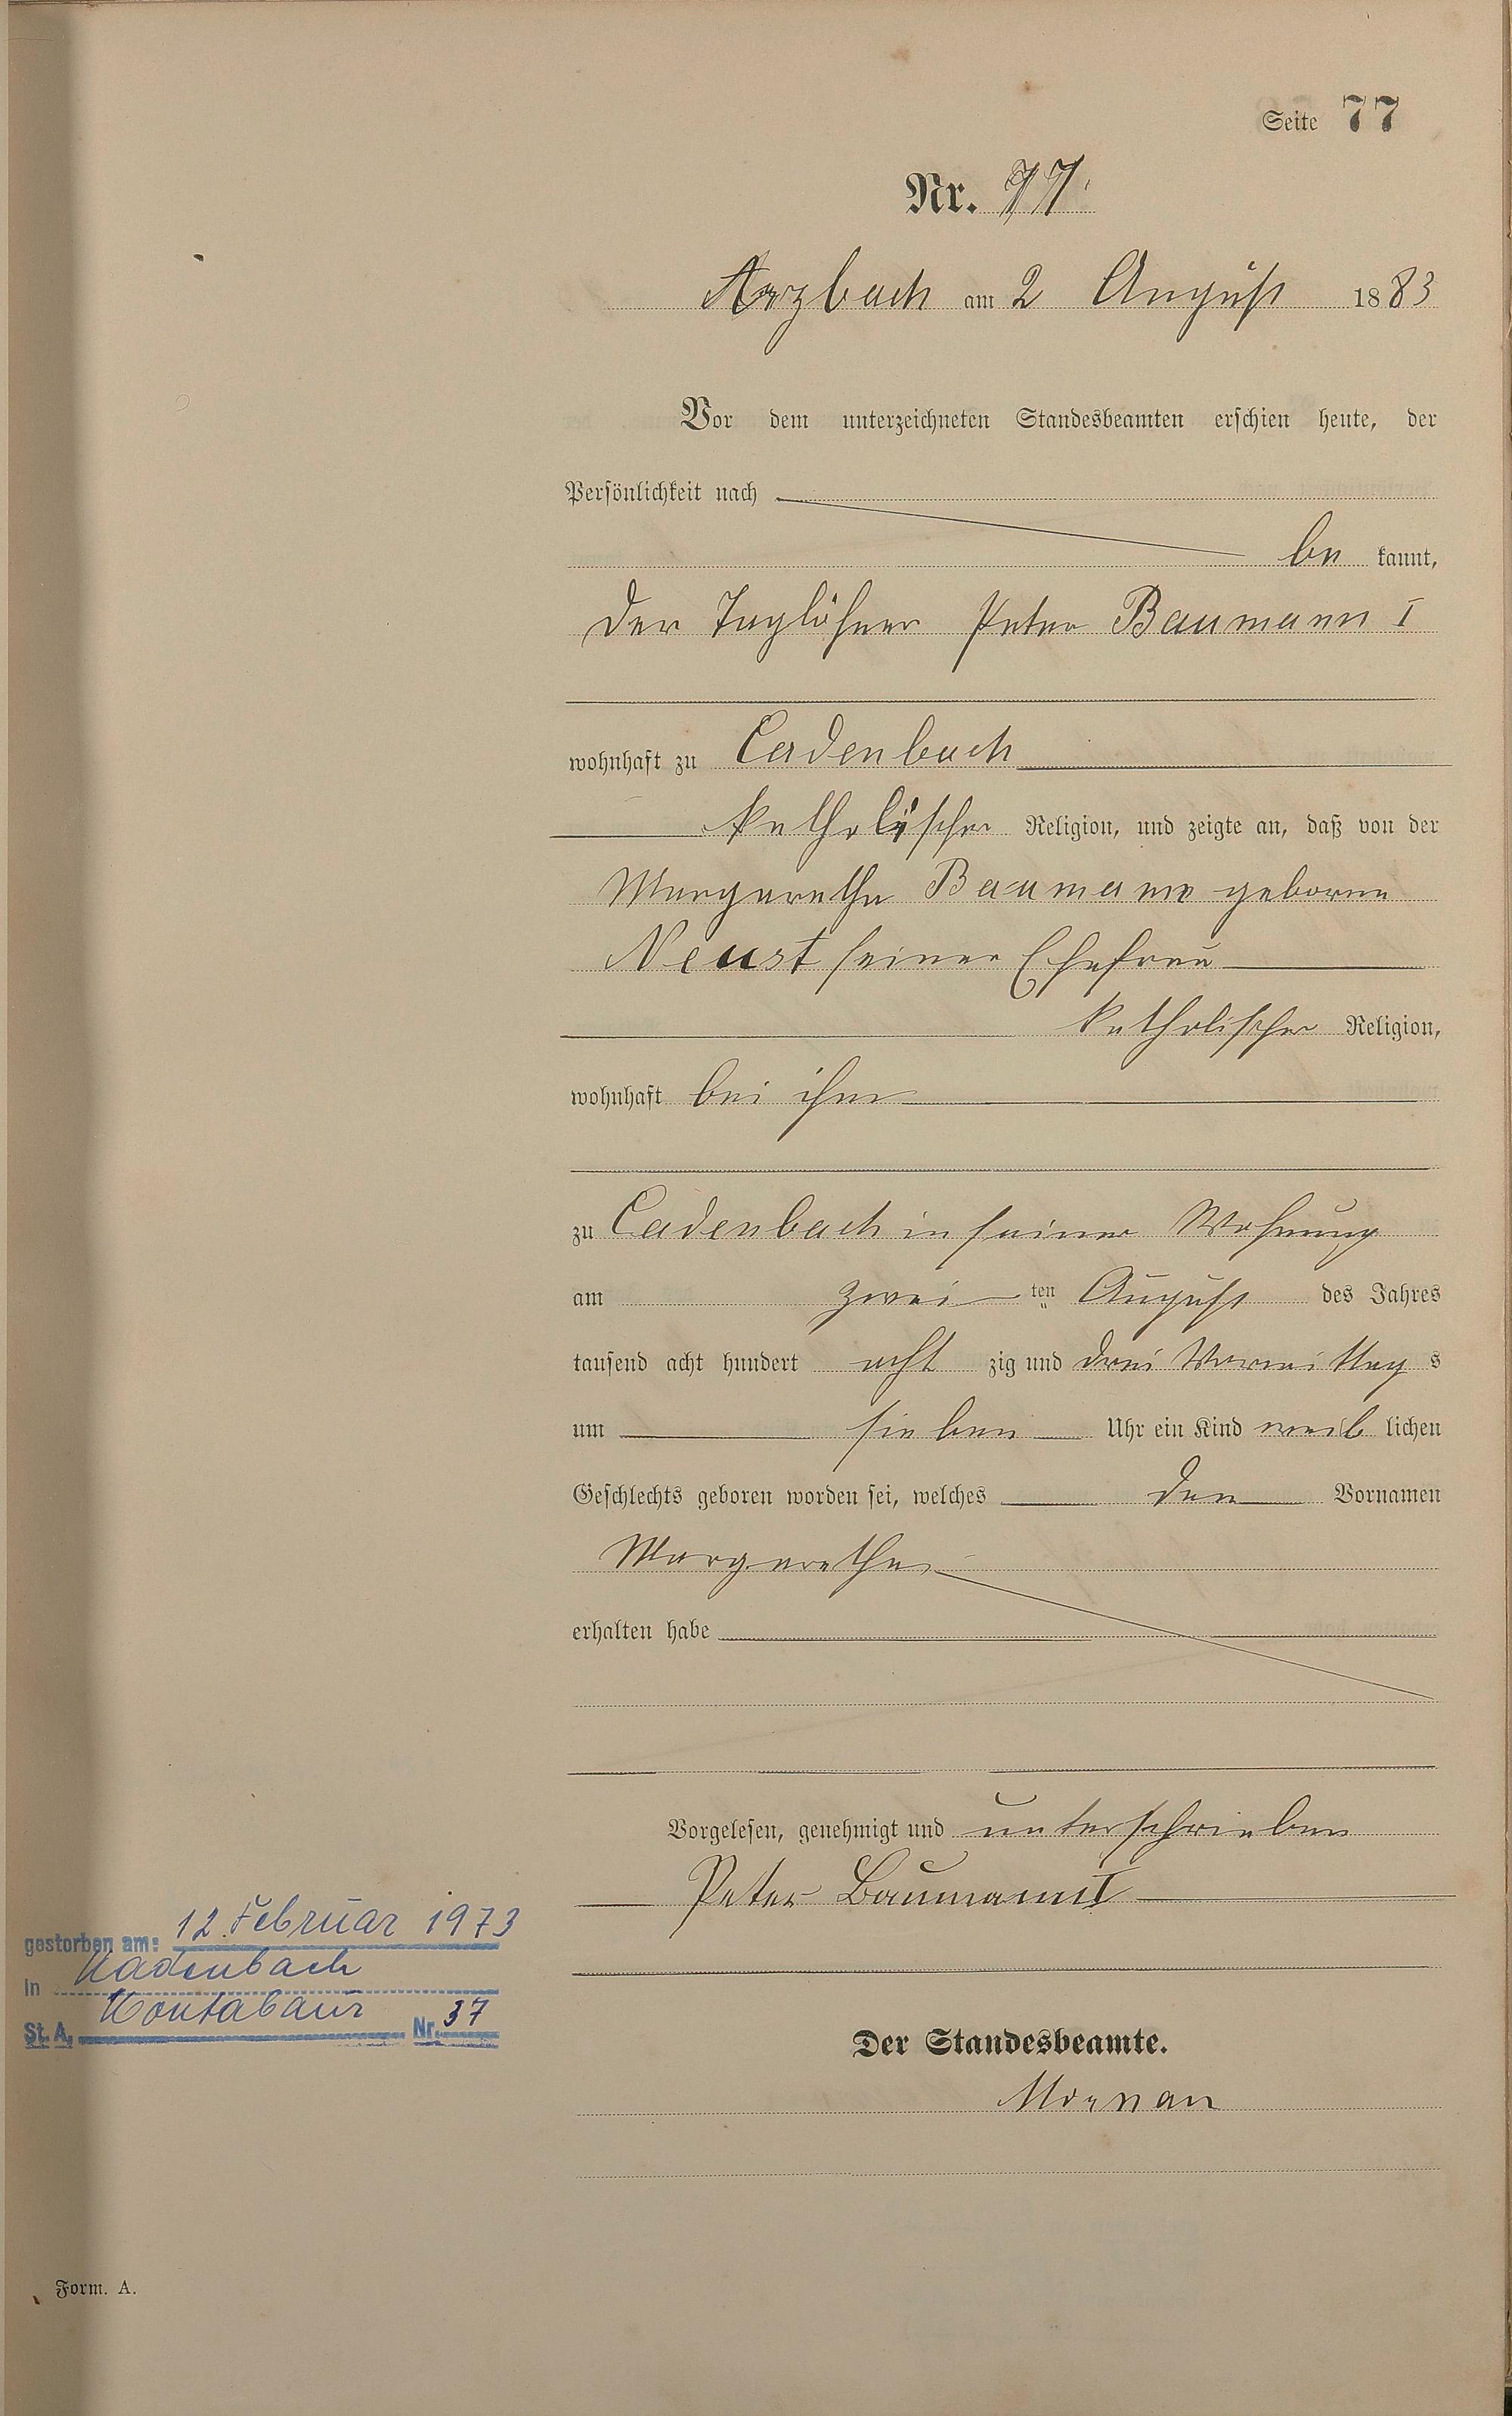 Seite 77
Nr. 77.
Arzbach am 2 August 1883
Vor dem unterzeichneten Standesbeamten erschien heute, der
Persönlichkeit nach
be kannt,
der Taglöhner Peter Baumann I
wohnhaft zu Cadenbach
katholischer Religion, und zeigte an, daß von der
Margarethe Baumann geborne
Neust seiner Ehefrau
katholischer Religion,
wohnhaft bei ihm
zu Cadenbach in seiner Wohnung
am zwei ten August des Jahres
tausend acht hundert acht zig und drei Vormittag s
um sieben Uhr ein Kind weib lichen
Geschlechts geboren worden sei, welches den Vornamen
Margarethe
erhalten habe
Vorgelesen, genehmigt und unterschrieben
Peter Baumann I
Der Standesbeamte.
gestorben am: 12. Februar 1973
in Kadenbach
St. A. Montabaur Nr. 37
Form. A.